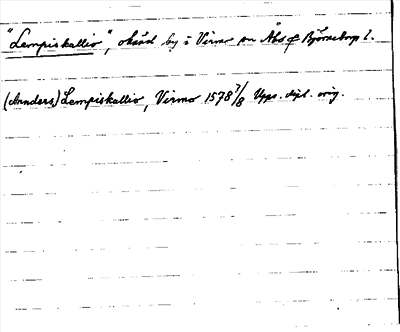 "Lempiskallio", okänd by i Virmo sn Åbo o Björneborg l.
(Anders) Lempiskallio, Virmo 1578 7/8 Upps. dipl. orig.